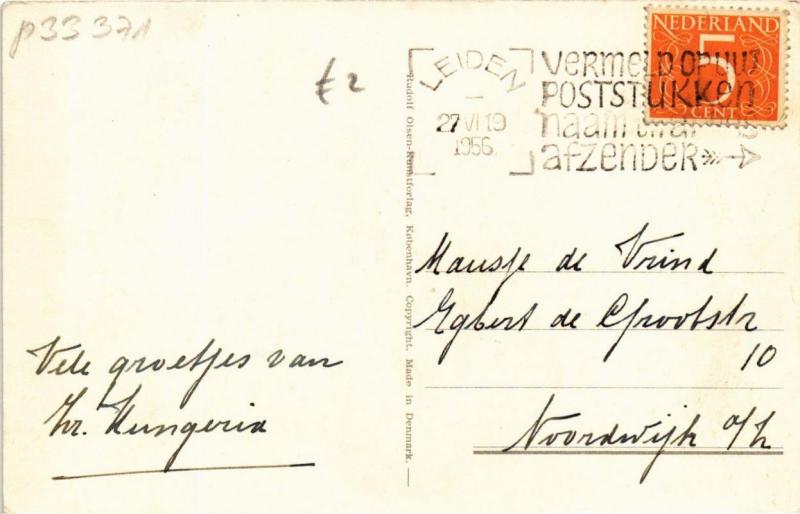 p33371
€2
LEIDEN
27 VI 19
1956
VERMELD OP UW
POSTSTUKKEN
naam en adres
afzender
NEDERLAND
5
CENT
Rudolf Olsen-Kunstforlag, København. Copyright. Made in Denmark.
Mausje de Vrind
Egbert de Grootstr
10
Noordwijk a/Z
Vele groetjes van
Zr. Hungeria